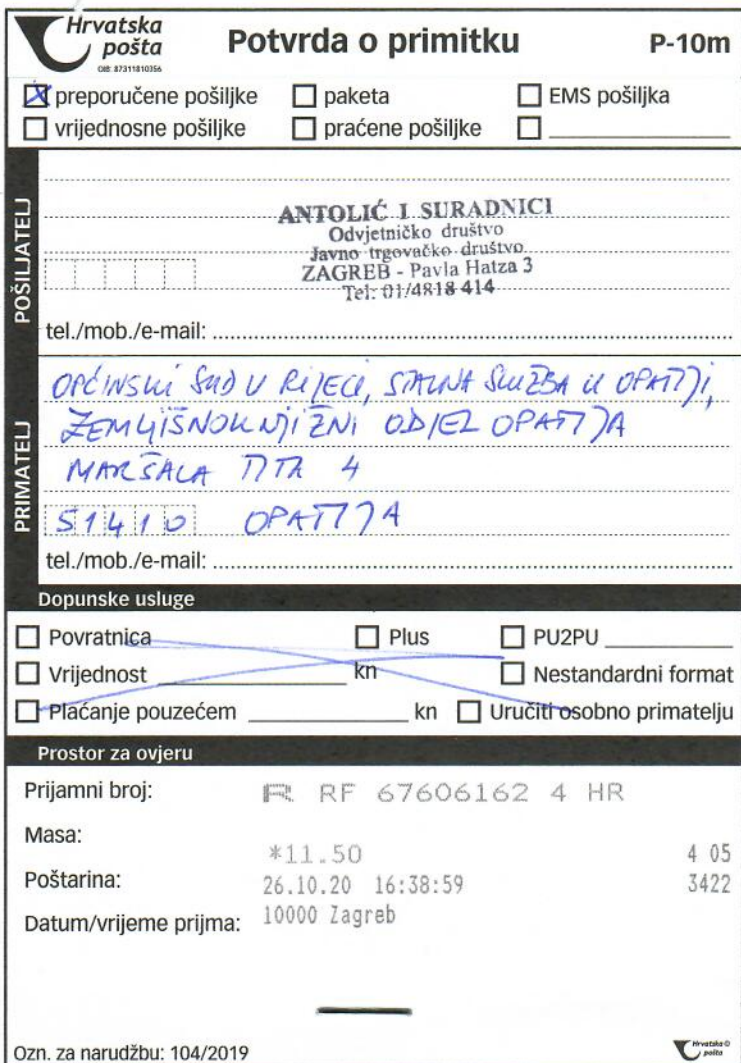 Hrvatska
pošta
OIB: 87311810356
Potvrda o primitku
P-10m
preporučene pošiljke paketa EMS pošiljka
vrijednosne pošiljke praćene pošiljke
POŠILJATELJ
ANTOLIĆ I SURADNICI
Odvjetničko društvo
Javno trgovačko društvo
ZAGREB - Pavla Hatza 3
Tel: 01/4818 414
tel./mob./e-mail:
PRIMATELJ
OPĆINSKI SUD U RIJECI, STALNA SLUŽBA U OPATIJI,
ZEMLJIŠNOKNJIŽNI ODJEL OPATIJA
MARŠALA TITA 4
51410 OPATIJA
tel./mob./e-mail:
Dopunske usluge
Povratnica Plus PU2PU
Vrijednost kn Nestandardni format
Plaćanje pouzećem kn Uručiti osobno primatelju
Prostor za ovjeru
Prijamni broj: R RF 67606162 4 HR
Masa:
*11.50 4 05
Poštarina: 26.10.20 16:38:59 3422
Datum/vrijeme prijma: 10000 Zagreb
Ozn. za narudžbu: 104/2019
Hrvatska
pošta